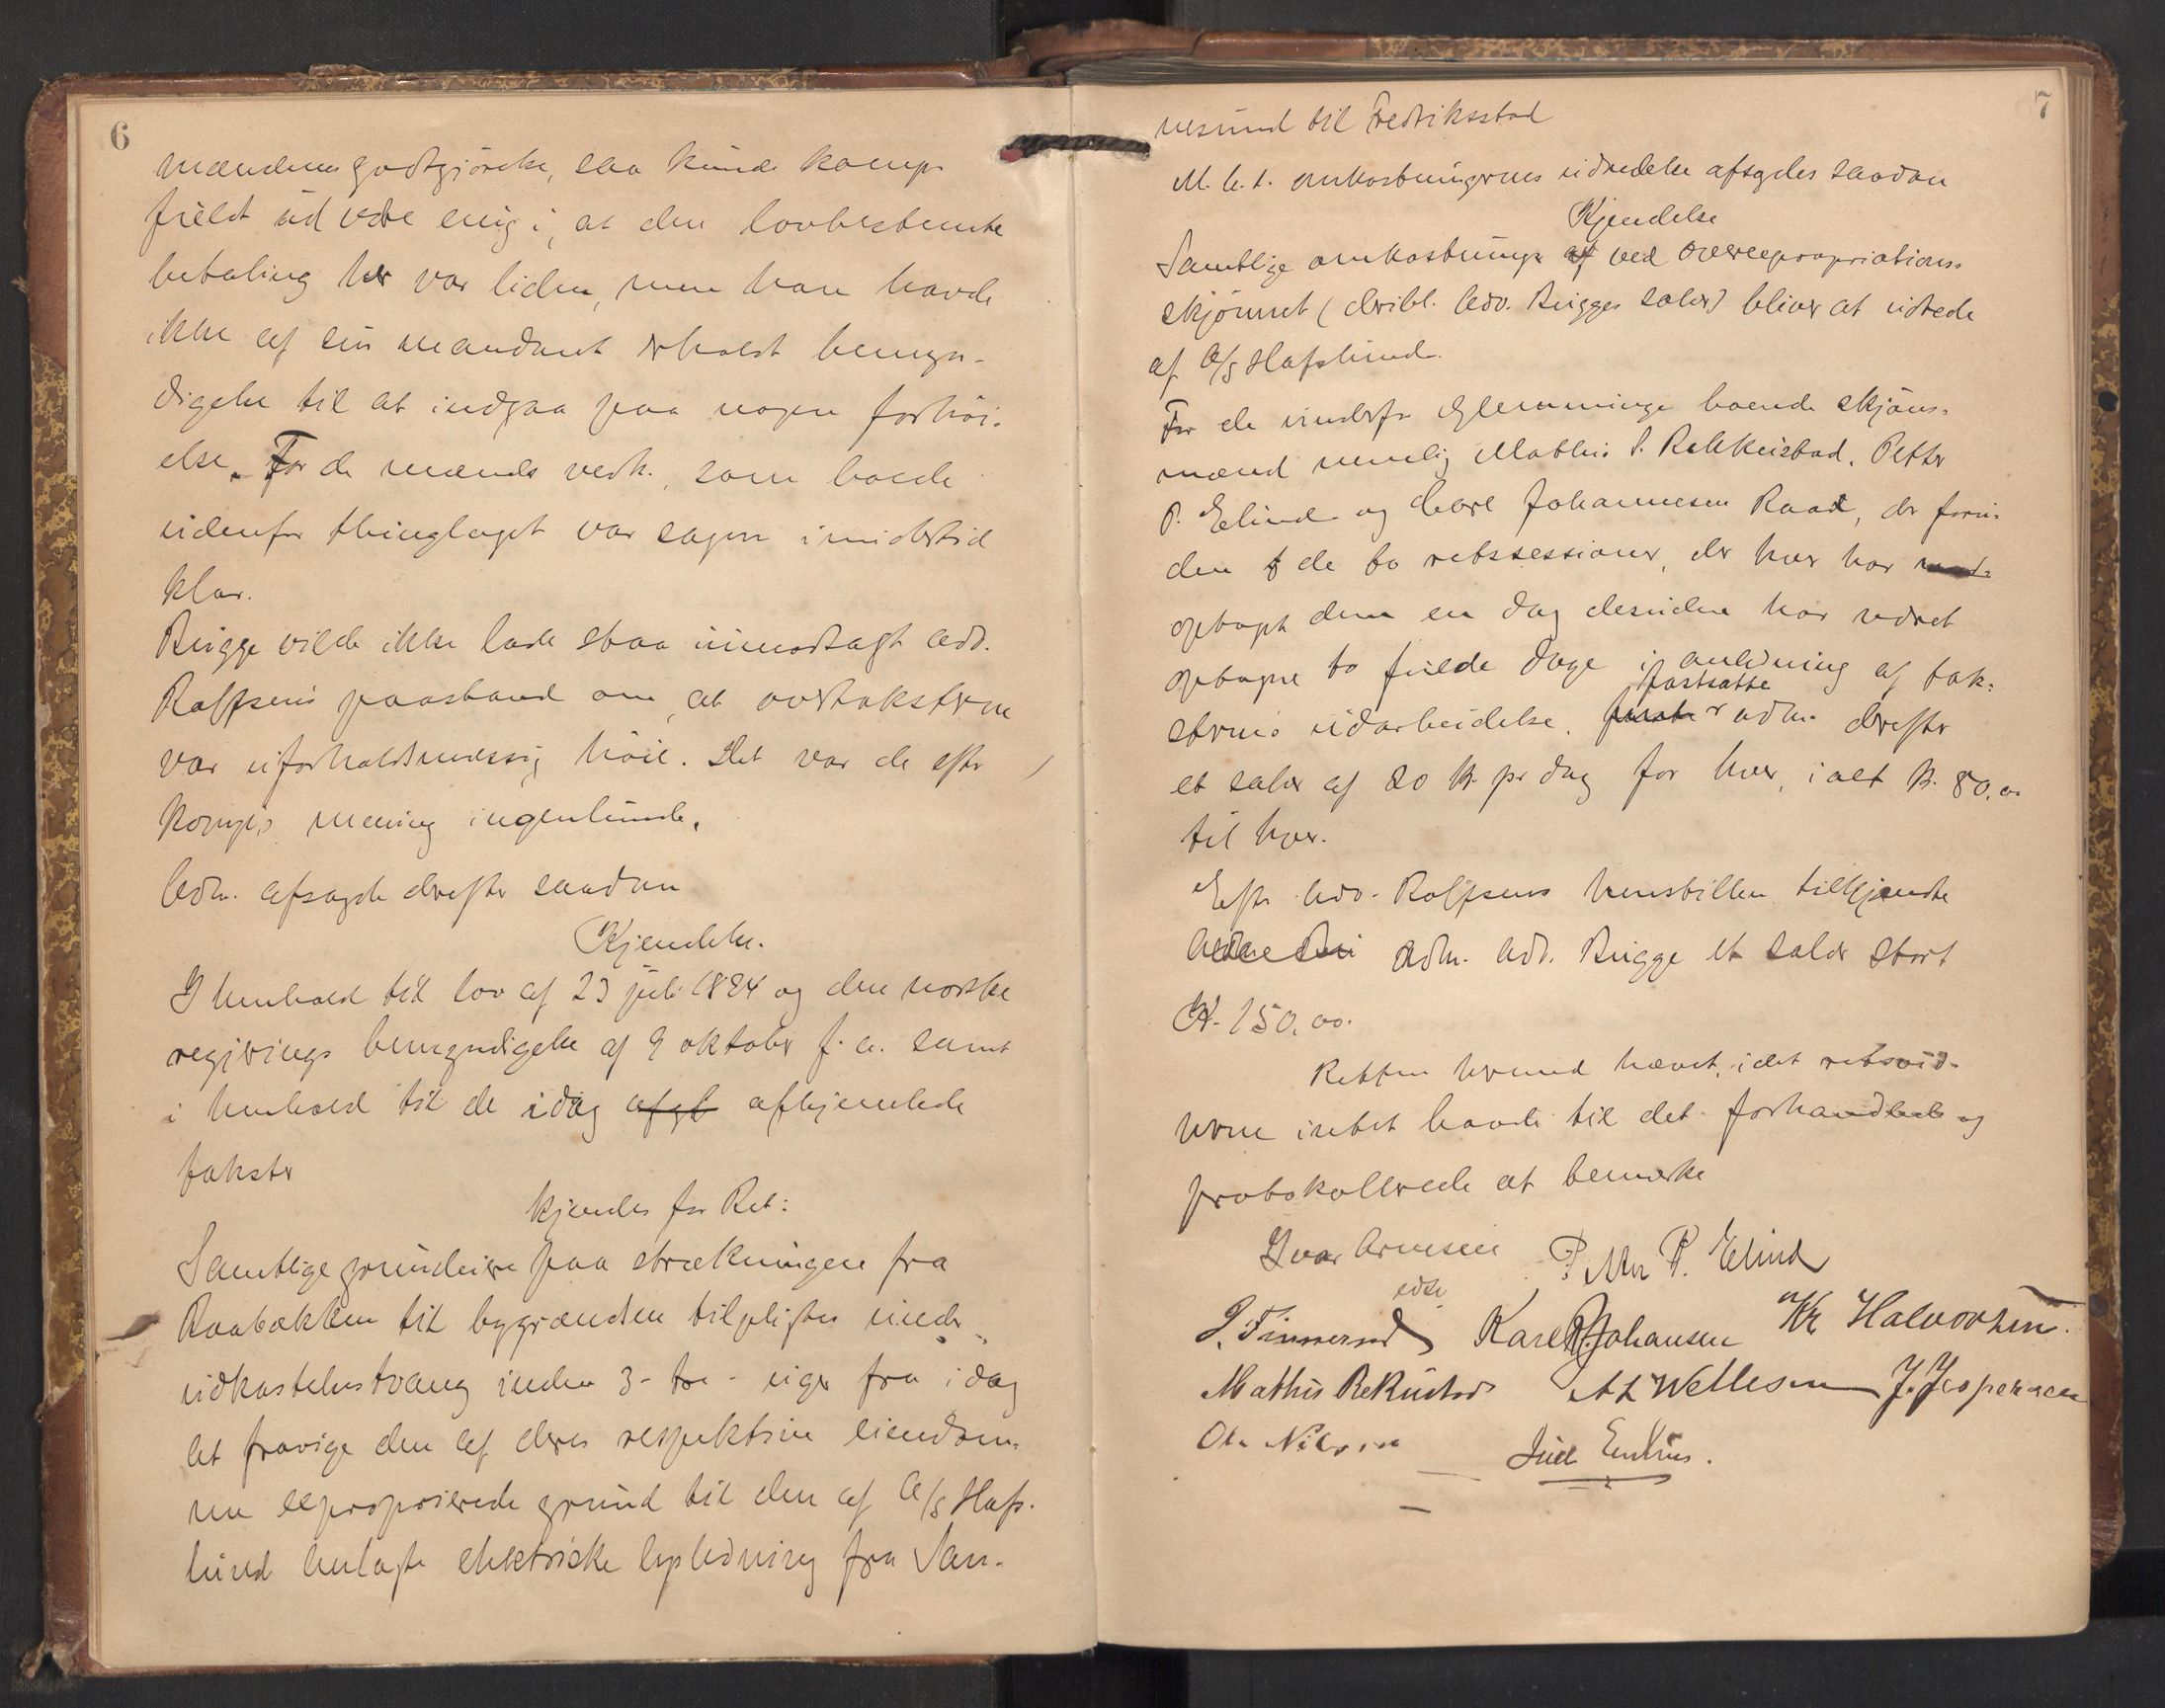 6
mændenes godtgjørelse, saa kunde komp.
fuldt ud være enig i, at den lovbestemte
betaling her var liden, men han havde
ikke af sin mandant erholdt bemyn-
digelse til at indgaa paa nogen forhöi-
else. For de mænds vedk., som boede
udenfor thinglaget var sagen imidlertid
klar.
Brügge vilde ikke lade staa uimodsagt adv.
Rolfsens paastand om, at overtaksterne
var uforholdsmæssig höie. Det var de efter
komp.s mening ingenlunde.
Adm. afsagde derefter saadan
Kjendelse.
I henhold til lov af 23 juli 1894 og den norske
regjerings bemyndigelse af 9 oktober f. a. samt
i henhold til de idag afgt afhjemlede
takster
kjendes for Ret:
Samtlige grundeiere paa strækningen fra
Raabækken til bygrændsen tilpligtes under
udkastelsestvang inden 3- tre - uger fra idag
at fravige den af deres respektive eiendom-
me exproprierede grund til den af A/S Hafs-
lund anlagte elektriske ledning fra San-
7
nesund til Fredriksstad
M. h. t. omkostningernes udredelse afsagdes saadan
Kjendelse
Samtlige omkostninger af ved overexpropriations-
skjönnet (deribl. Adv. Brügges salær) bliver at udrede
af A/S Hafslund.
For de udenfor Glemminge boende skjöns-
mænd nemlig Mathis P. Rekkustad, Petter
P. Elind og Carl Johannesen Raad, der foru-
den t de to retssessioner, der hver har
optaget dem en dag desuden har været
optagne to fulde dage i anledning af tak-
sternes udarbeidelse, fastsatte adm. derefter
et salær af 20 kr. pr dag for hver, ialt kr. 80,00
til hver.
Efter Adv. Rolfsens henstillen tilkjendte
adm. Adv. Brügge et salær stort
Kr. 150,00.
Retten hermed hævet, idet retsvid-
nerne intet havde til det forhandlede og
protokollerede at bemærke
Ivar Arnesen P. Elind
edsv.
Karl R. Johansen Kr Halvorsen.
Mathis Rekustad A L Wellesen J. Jespersen
Ole Nilsen Juel Enkrus.